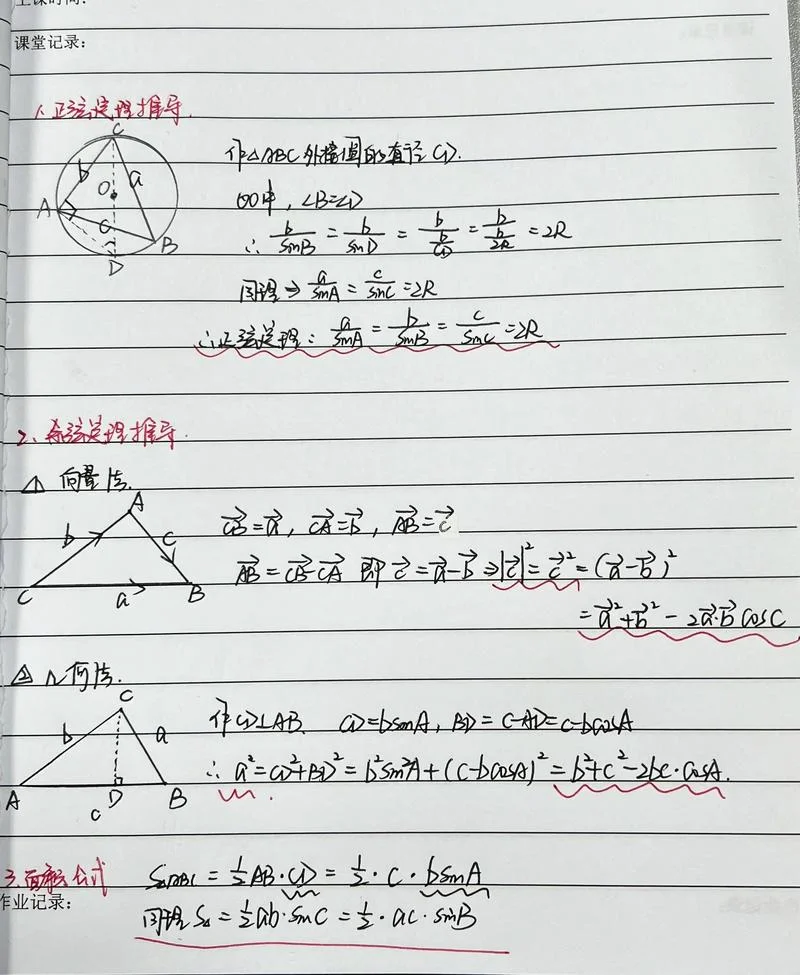 上课时间:
课堂记录:
1、正弦定理推导.
C
b
a
O
A
c
B
D
作△ABC外接圆的直径CD.
⊙O中，∠B=∠D
∴ b/sinB = b/sinD = b/(b/CD) = b/(b/2R) = 2R
同理⇒ a/sinA = c/sinC = 2R
∴正弦定理: a/sinA = b/sinB = c/sinC = 2R
2、余弦定理推导.
△1 向量法.
A
b
c
C
a
B
CB→=a→, CA→=b→, AB→=c→
AB→=CB→-CA→ 即 c→=a→-b→ ⇒|c→|²=c→²=(a→-b→)²
=a→²+b→²-2a→·b→cosC
△2 几何法.
C
b
a
A
D
B
c
作CD⊥AB. CD=bsinA, BD=c-AD=c-bcosA
∴ a²=CD²+BD²=b²sin²A+(c-bcosA)²=b²+c²-2bc·cosA.
3.面积公式
S△ABC = ½AB·CD = ½·c·bsinA
作业记录:
同理S△ = ½ab·sinC = ½·ac·sinB